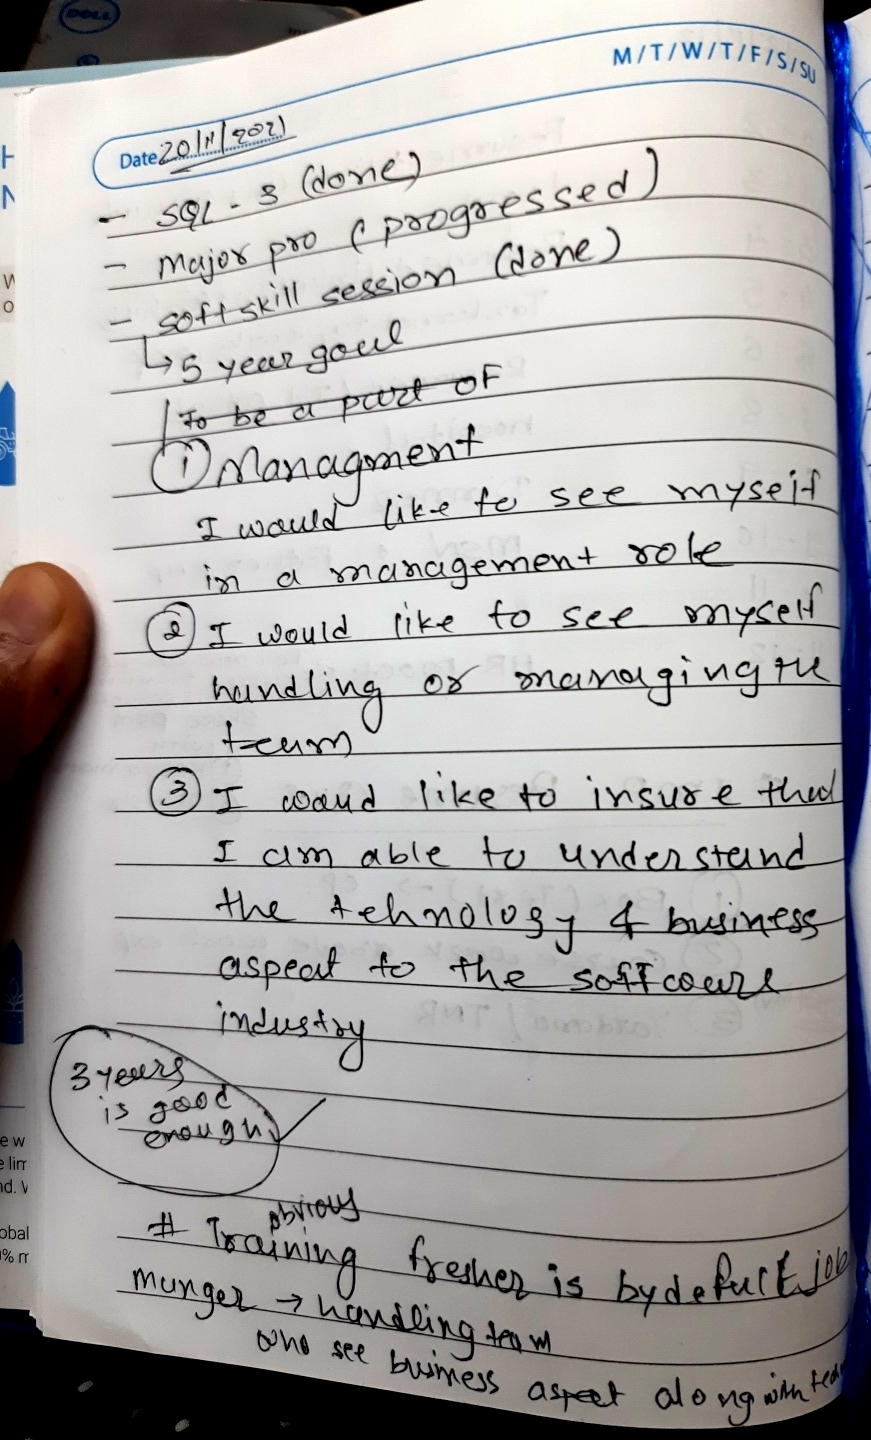 DELL
M/T/W/T/F/S/SU
Date 20/11/2021
- SQL - 3 (done)
- Major pro (progressed)
- soft skill session (done)
↳ 5 year goul
To be a part of
① Managment
I would like to see myself
in a management role
② I would like to see myself
handling or managing the
team
③ I woud like to insure that
I am able to understand
the tehnology & business
aspeat to the software
industry
3 years
is good
enough
obvious
# Training fresher is by defult job
munger → handling team
who see business aspect along with